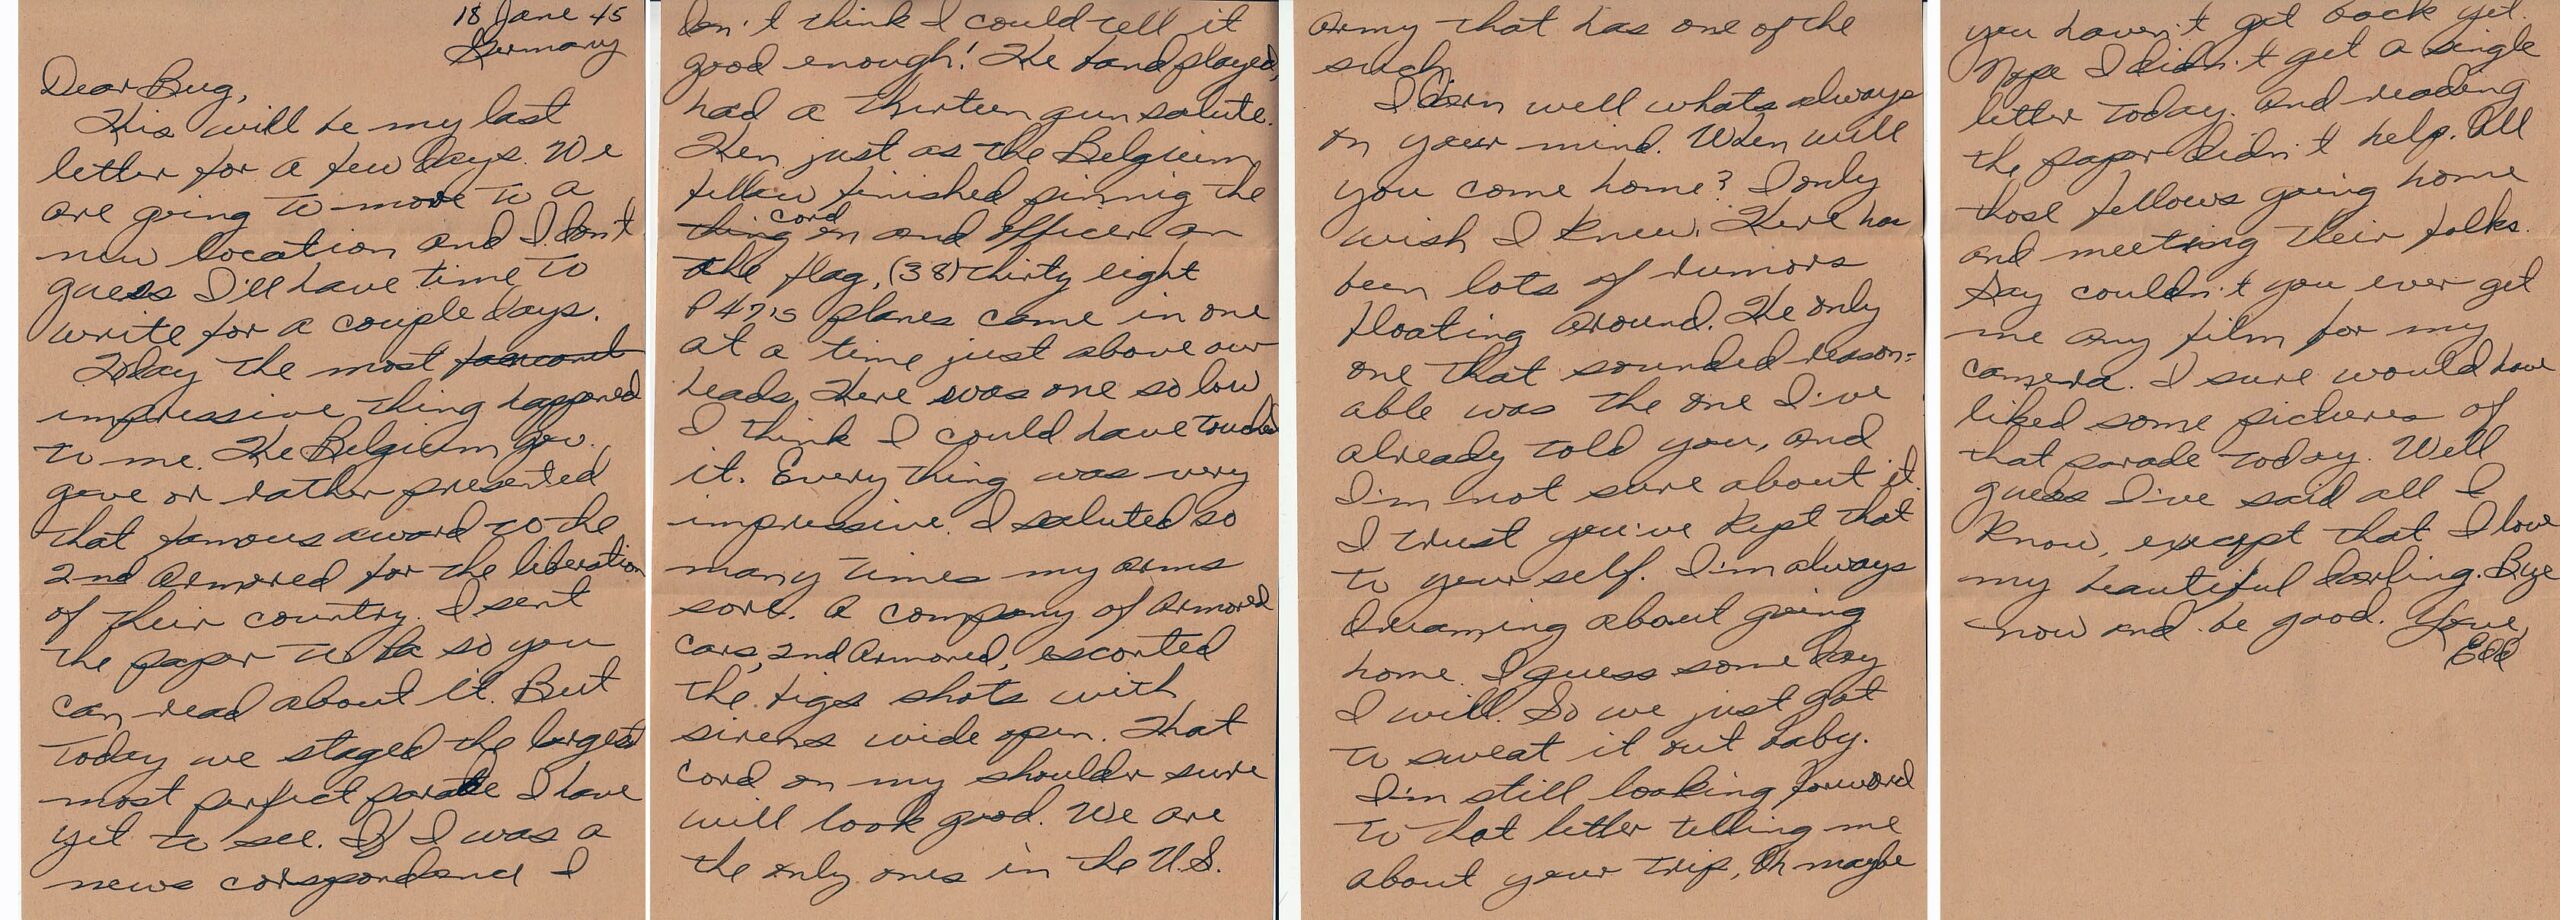 18 June 45
Germany
Dear Bug,
This will be my last
letter for a few days. We
are going to move to a
new location and I don't
guess I'll have time to
write for a couple days.
Today the most
impressive thing happened
to me. The Belgium gov.
gave or rather presented
that famous award to the
2nd Armored for the liberation
of their country. I sent
the paper to ta so you
can read about it. But
today we staged the largest
most perfect parade I have
yet to see. If I was a
news corspondend I
don't think I could tell it
good enough! The band played,
had a thirteen gun salute.
Then just as the Belgium
fellow finished pinnig the
cord
thing on and officer on
the flag, (38) thirty eight
P47's planes come in one
at a time just above our
heads. There was one so low
I think I could have touched
it. Every thing was very
impressive. I saluted so
many times my arms
sore. A company of armored
cars, 2nd Armored, escorted
the bigs shots with
sirens wide open. That
cord on my shoulder sure
will look good. We are
the only ones in the U.S.
army that has one of the
such.
I darn well whats always
on your mind. When will
you come home? I only
wish I knew. There has
been lots of rumors
floating around. The only
one that sounded reason-
able was the one I've
already told you, and
I'm not sure about it.
I trust you've kept that
to your self. I'm always
dreaming about going
home. I guess some day
I will. So we just got
to sweat it out baby.
I'm still looking forward
to that letter telling me
about your trip, Oh maybe
you haven't got back yet.
Nope I didn't get a single
letter today. And reading
the paper didn't help. All
those fellows going home
and meeting their folks.
Say couldn't you ever get
me any film for my
camera. I sure would have
liked some pictures of
that parade today. Well
guess I've said all I
know, except that I love
my beautiful darling. Bye
now and be good. Love,
Edd